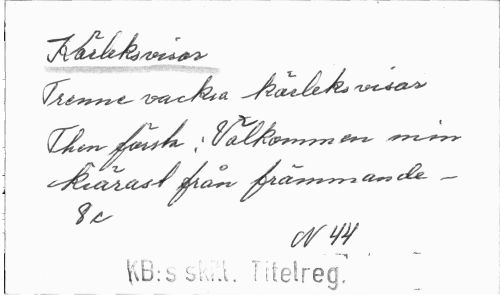 Kärleksvisor
Trenne vackra kärleksvisor
Then första: Välkommen min
kiärast från främmande -
8c
N 44
KB:s skilt. Titelreg.